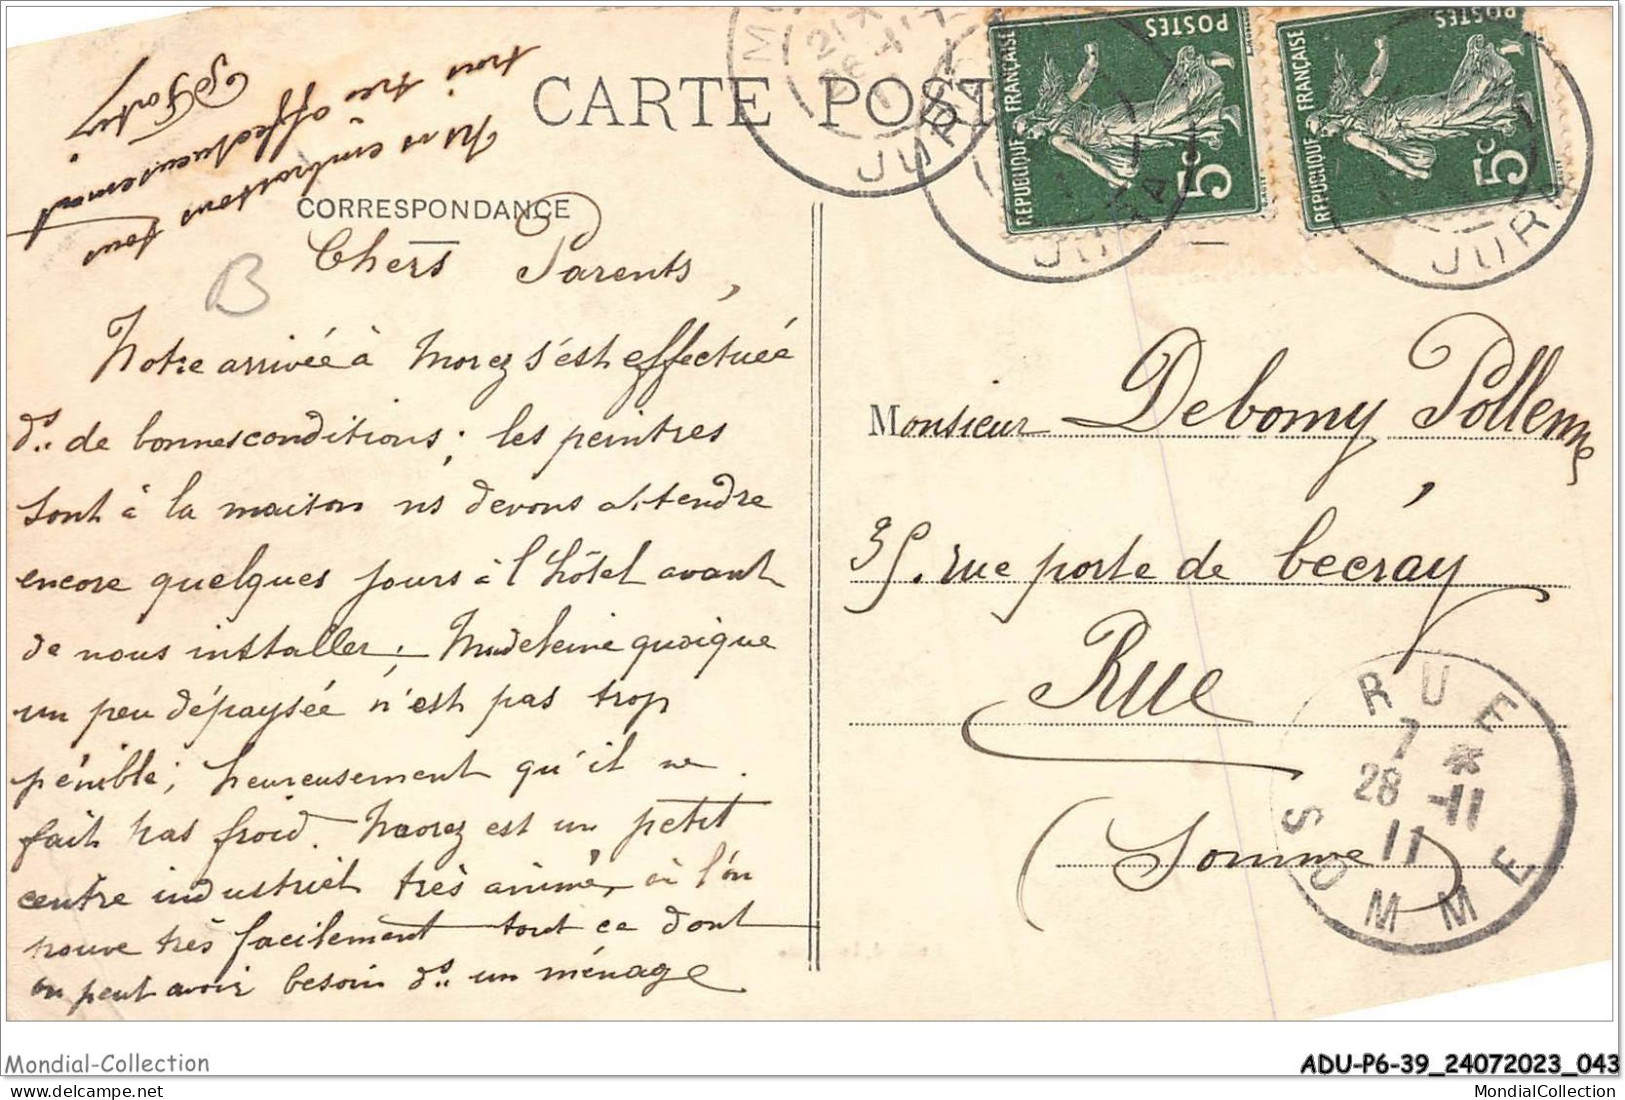 CARTE POST
CORRESPONDANCE
Chers Parents,
Notre arrivée à Morez s'est effectuée
ds de bonnes conditions; les peintres
sont à la maison ns devons attendre
encore quelques jours à l'hôtel avant
de nous installer; Madeleine quoique
un peu dépaysée n'est pas trop
pénible; heureusement qu'il ne
fait pas froid. Morez est un petit
centre industriel très animé, où l'on
trouve très facilement tout ce dont
on peut avoir besoin ds un ménage
Ns vs embrassons tous
trois très affectueusement
B
POSTES
REPUBLIQUE FRANÇAISE
5c
POSTES
REPUBLIQUE FRANÇAISE
5c
JURA
JURA
JURA
Monsieur Debomy Pollenne,
35. rue porte de becray
Rue
(Somme)
RUE
7 *
28 -11
11
SOMME
Mondial-Collection
ADU-P6-39_24072023_043
MondialCollection
MondialCollection